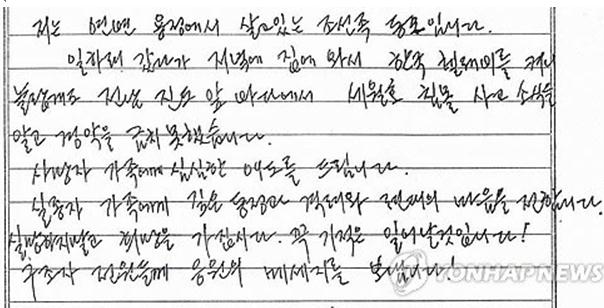 저는 연변 용정에서 살고있는 조선족 동포입니다.
일하러 갔다가 저녁에 집에 와서 한국 텔레비를 켜니
놀랍게도 전남 진도 앞 바다에서 세월호 침몰 사고 소식을
알고 경악을 금치 못했습니다.
사망자 가족에 심심한 애도를 드립니다.
실종자 가족에게 깊은 동정과 격려와 마음을 전합니다.
실망하지말고 희망을 가집시다. 꼭 기적은 일어날것입니다!
구조자 전원들께 응원의 메세지를 보냅니다!
YONHAPNEWS